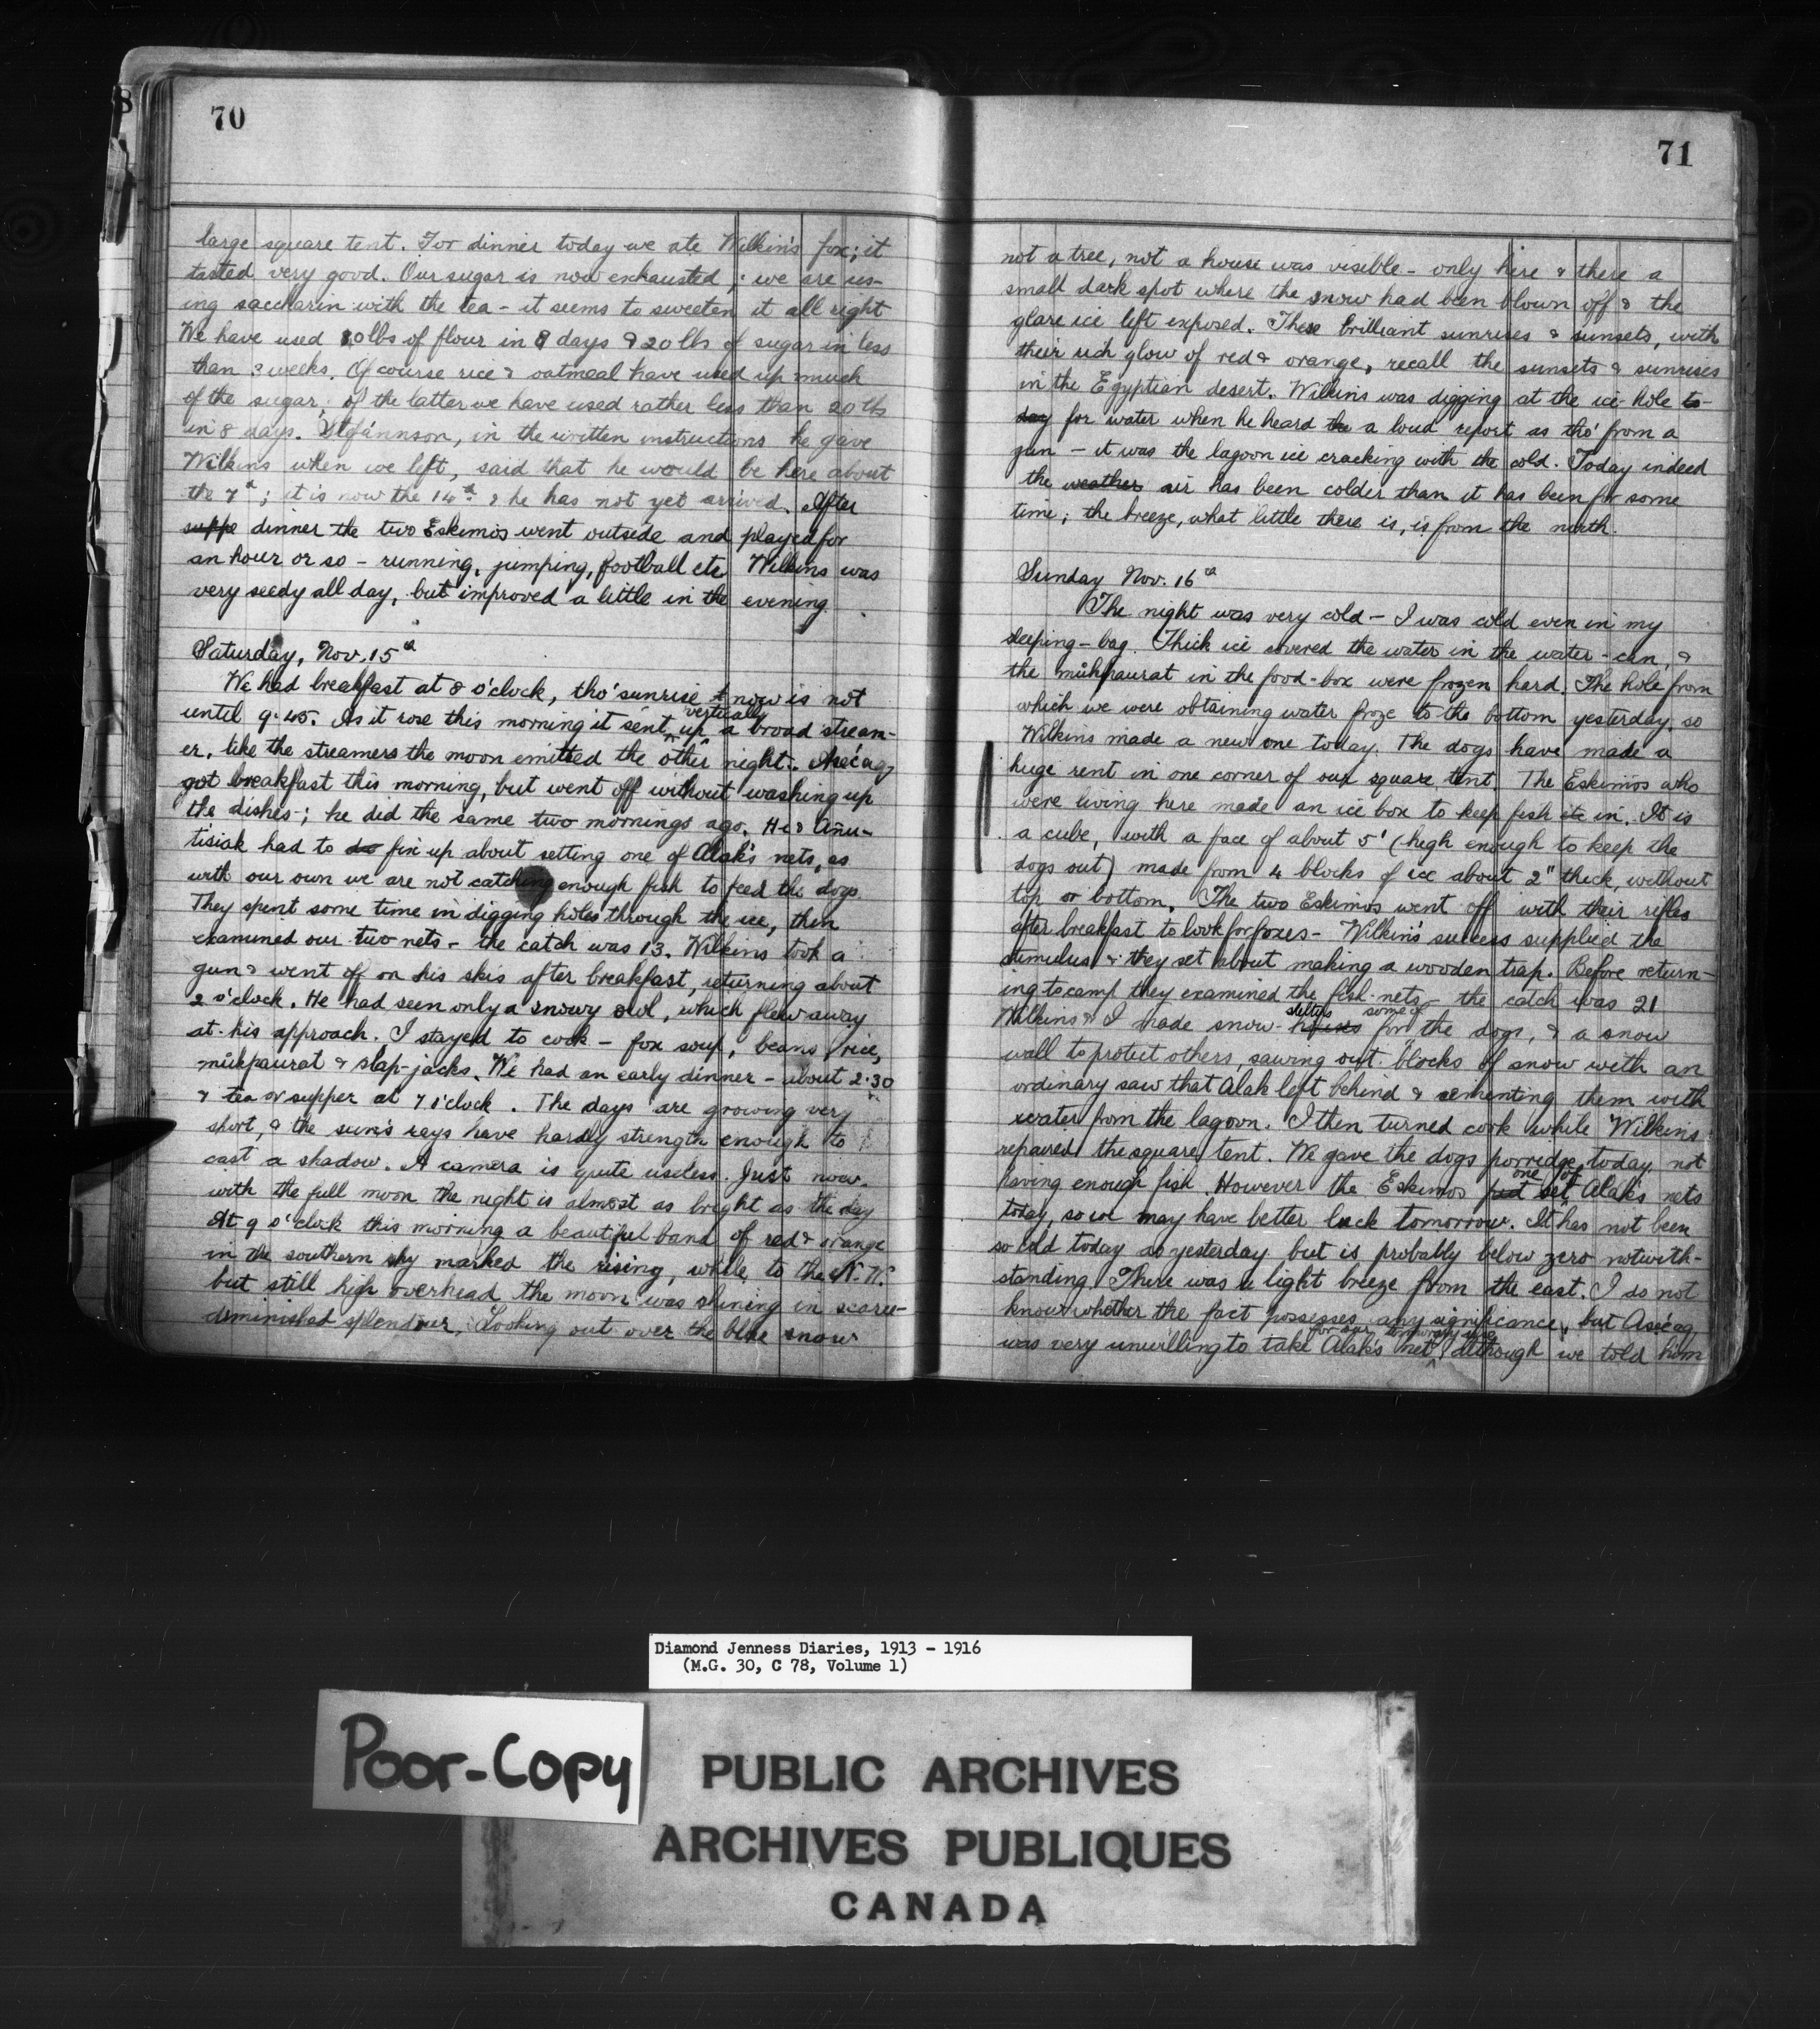 70
large square tent. For dinner today we ate Wilkin's fox; it
tasted very good. Our sugar is now exhausted; we are us-
ing saccharin with the tea - it seems to sweeten it all right
We have used 20 lbs of flour in 8 days & 20 lbs of sugar in less
than 3 weeks. Of course rice & oatmeal have used up much
of the sugar; of the latter we have used rather less than 20 lbs
in 8 days. Stefánnson, in the written instructions he gave
Wilkins when we left, said that he would be here about
the 7th; it is now the 14th & he has not yet arrived. After
suppe dinner the two Eskimos went outside and played for
an hour or so - running, jumping, football etc. Wilkins was
very seedy all day, but improved a little in the evening.
Saturday, Nov. 15th
We had breakfast at 8 o'clock, tho' sunrise now is not
until 9.45. As it rose this morning it sent vertically up a broad stream-
er, like the streamers the moon emitted the other night. Aséaq
got breakfast this morning, but went off without washing up
the dishes; he did the same two mornings ago. He & Añu-
tisiak had to do fix up about setting one of Alak's nets, as
with our own we are not catching enough fish to feed the dogs.
They spent some time in digging holes through the ice, then
examined our two nets - the catch was 13. Wilkins took a
gun & went off on his skis after breakfast, returning about
2 o'clock. He had seen only a snowy owl, which flew away
at his approach. I stayed to cook - fox soup, beans, rice,
mûkpaurat & slap-jacks. We had an early dinner - about 2.30
& tea or supper at 7 o'clock. The days are growing very
short, & the sun's rays have hardly strength enough to
cast a shadow. A camera is quite useless. Just now
with the full moon the night is almost as bright as the day
At 9 o'clock this morning a beautiful band of red & orange
in the southern sky marked the rising, while to the N.W.
but still high overhead the moon was shining in scarce-
diminished splendour. Looking out over the blue snow
71
not a tree, not a house was visible - only here & there a
small dark spot where the snow had been blown off & the
glare ice left exposed. These brilliant sunrises & sunsets, with
their rich glow of red & orange, recall the sunsets & sunrises
in the Egyptian desert. Wilkins was digging at the ice-hole to-
day for water when he heard the a loud report as tho' from a
gun - it was the lagoon ice cracking with the cold. Today indeed
the weather air has been colder than it has been for some
time; the breeze, what little there is, is from the north.
Sunday Nov. 16th
The night was very cold - I was cold even in my
sleeping-bag. Thick ice covered the water in the water-can, &
the mûkpaurat in the food-box were frozen hard. The hole from
which we were obtaining water froze to the bottom yesterday, so
Wilkins made a new one today. The dogs have made a
huge rent in one corner of our square tent. The Eskimos who
were living here made an ice box to keep fish it in. It is
a cube, with a face of about 5' (high enough to keep the
dogs out) made from 4 blocks of ice about 2" thick, without
top or bottom. The two Eskimos went off with their rifles
after breakfast to look for foxes - Wilkin's success supplied the
stimulus & they set about making a wooden trap. Before return-
ing to camp they examined the fish-nets - the catch was 21
Wilkins & I made snow-houses shelters for some of the dogs, & a snow
wall to protect others, sawing out blocks of snow with an
ordinary saw that Alak left behind & cementing them with
water from the lagoon. I then turned cook while Wilkins
repaired the square tent. We gave the dogs porridge today, not
having enough fish. However the Eskimos put set one of Alak's nets
today, so we may have better luck tomorrow. It has not been
so cold today as yesterday but is probably below zero notwith-
standing. There was a light breeze from the east. I do not
know whether the fact possesses any significance, but Aséaq
was very unwilling to take Alak's net for our temporary use, although we told him
Diamond Jenness Diaries, 1913 - 1916
(M.G. 30, C 78, Volume 1)
Poor-Copy
PUBLIC ARCHIVES
ARCHIVES PUBLIQUES
CANADA